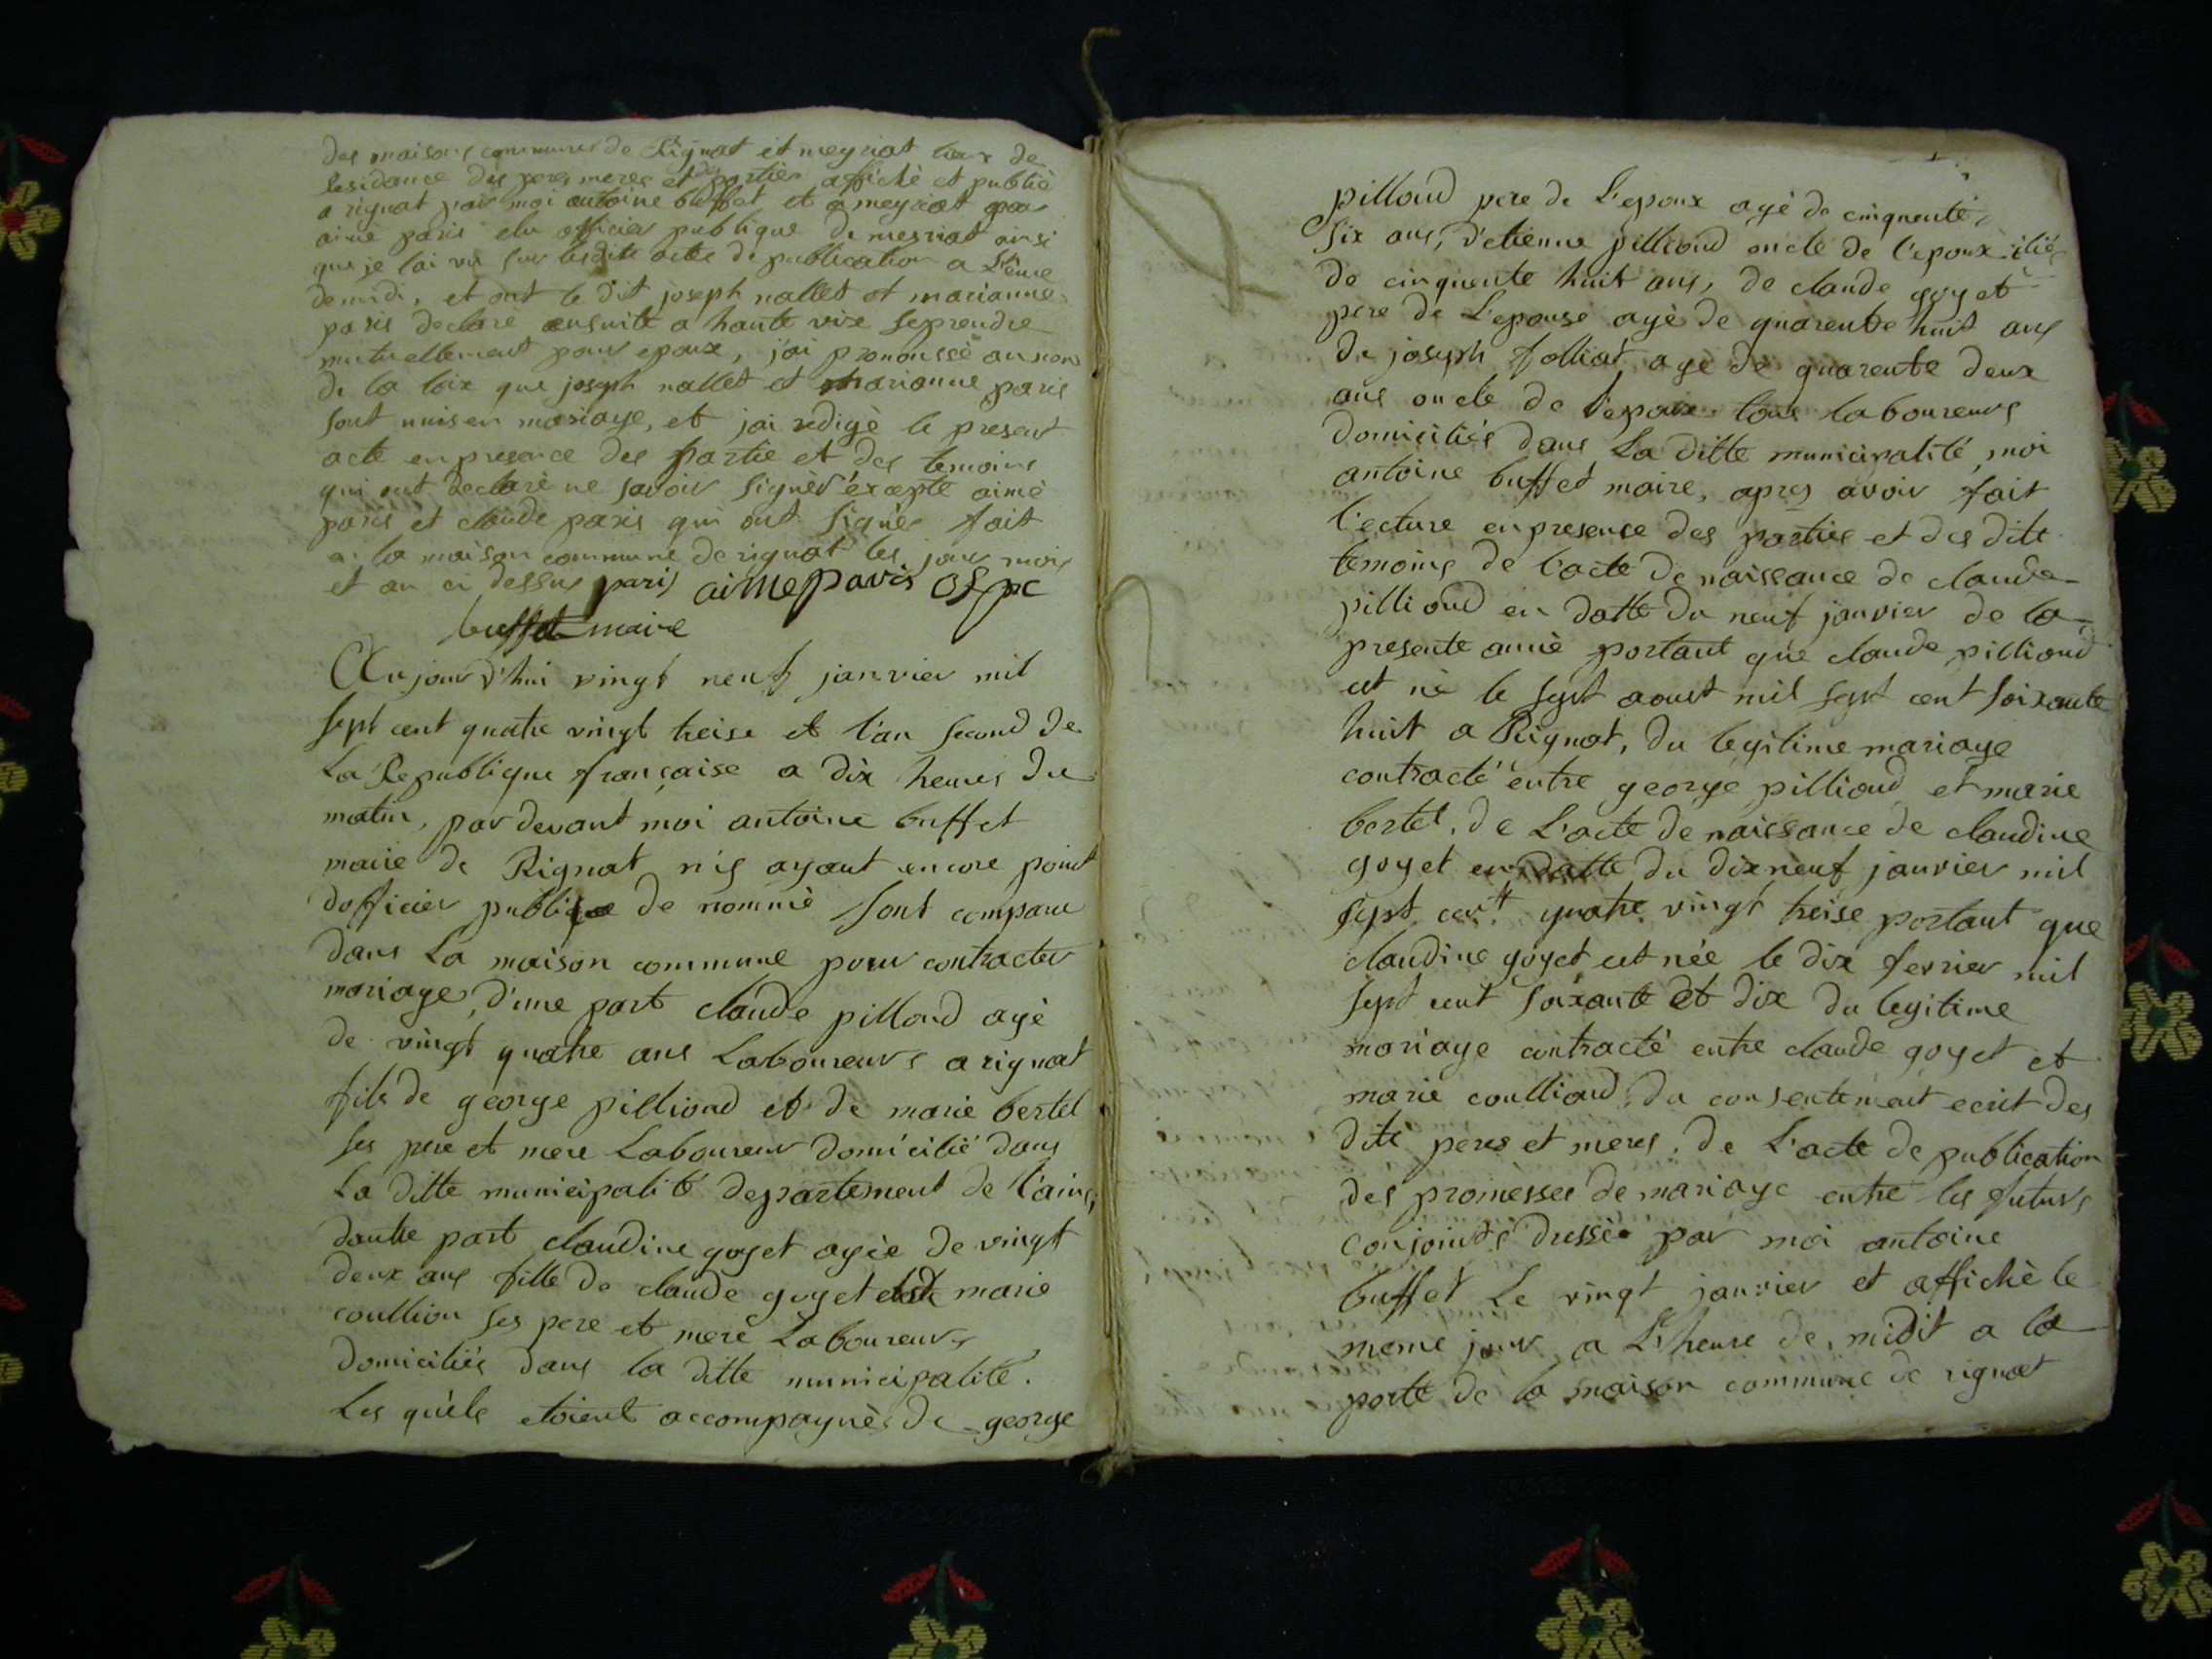 des maisons communes de Rignat et meyriat lieux de
Residance des peres meres et des parties affiché et publié
a rignat par moi antoine buffet et a meyriat par
aimé paris elu officier publique de meyriat ainsi
que je lai vu sur lesdits actes de publication a L'heure
de midi, et ont le dit joseph nallet et marianne
paris declaré ensuite a haute voix se prendre
mutuellement pour epoux, j'ai pronoussé au nom
de la loix que joseph nallet et marianne paris
sont unis en mariage, et jai redigé le present
acte en presence des partie et des temoins
qui ont declaré ne savoir signer éxcepté aimé
paris et claude paris qui ont signé fait
a la maison commune de rignat les jour mois
et an ci dessus paris aime paris
buffet maire
Aujourd'hui vingt neuf janvier mil
sept cent quatre vingt treise et l'an second de
La Republique française a dix heures du
matin, par devant moi antoine buffet
maire de Rignat n'y ayant encore point
dofficier publique de nommé sont comparu
dans La maison commune pour contracter
mariage, d'une part claude pilloud agé
de vingt quatre ans Laboureurs a rignat
fils de george pillioud et de marie bertel
ses pere et mere Laboureur domicilié dans
La ditte municipalité departement de l'ains,
dautre part claudine goyet agée de vingt
deux ans fille de claude goyet et de marie
coullion ses pere et mere Laboureurs
domiciliés dans la ditte municipalité.
Les quèls etoient accompagnès de george
pilloud pere de L'epoux agé de cinquente
six ans, d'etienne pillioud oncle de l'epoux
de cinquente huit ans, de claude goyet
pere de L'epouse agé de quarente huit ans
de joseph folliat agé de quarente deux
ans oncle de l'epoux tous laboureurs
domiciliés dans La ditte municipalité, moi
antoine buffet maire, apres avoir fait
l'ecture en presense des parties et des dits
temoins de l'acte de naissance de claude
pillioud en datte du neuf janvier de la
presente année portant que claude pillioud
est né le sept aoust mil sept cent soixante
huit a Rignat, du legitime mariage
contracté entre george pillioud et marie
bertel. de L'acte de naissance de claudine
goyet en datte du dix neuf janvier mil
sept cent quatre vingt treise portant que
claudine goyet est née le dix fevrier mil
sept cent soixante et dix du legitime
mariage contracté entre claude goyet et
marie coullioud, du consentement ecrit des
dits peres et meres, de L'acte de publication
des promesses de mariage entre les futurs
conjoints dressée par moi antoine
buffet Le vingt janvier et affiché le
meme jour a L'heure de midit a la
porte de la maison commune de rignat